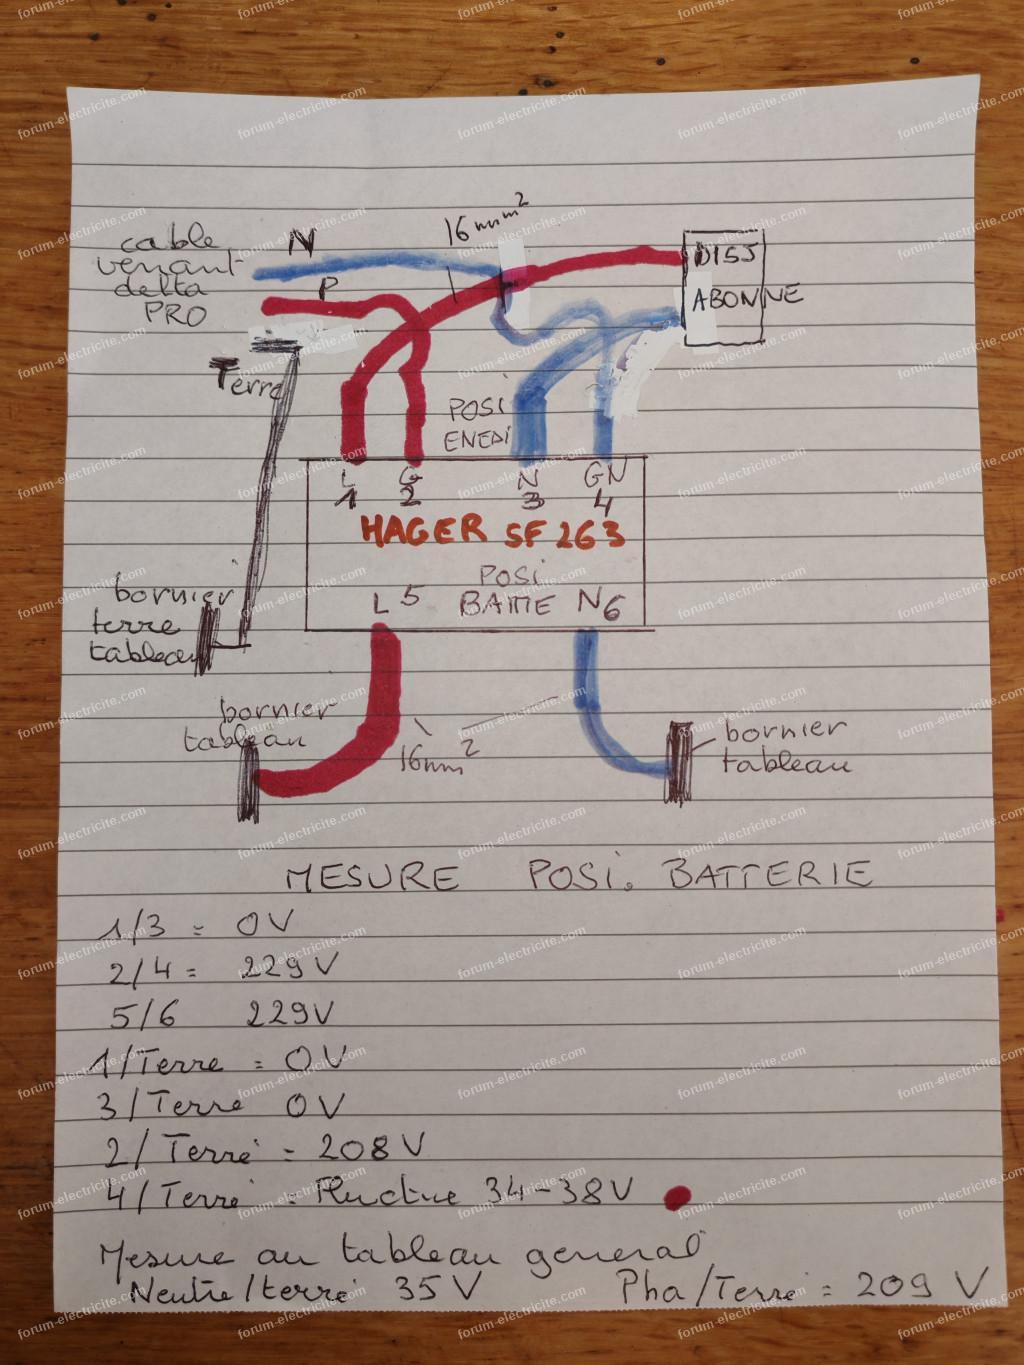 16mm²
cable
venant
delta
PRO
N
P
DISJ
ABONNE
Terre
POSI
ENEDI
L G N GN
1 2 3 4
HAGER SF 263
POSI
BATTE
L 5
N6
bornier
terre
tableau
bornier
tableau
16mm²
bornier
tableau
MESURE POSI. BATTERIE
1/3 = 0V
2/4 = 229V
5/6 229V
1/Terre = 0V
3/Terre 0V
2/Terre = 208V
4/Terre = Fluctue 34-38V
Mesure au tableau general
Neutre/terre 35V Pha/Terre = 209 V
forum-electricite.com